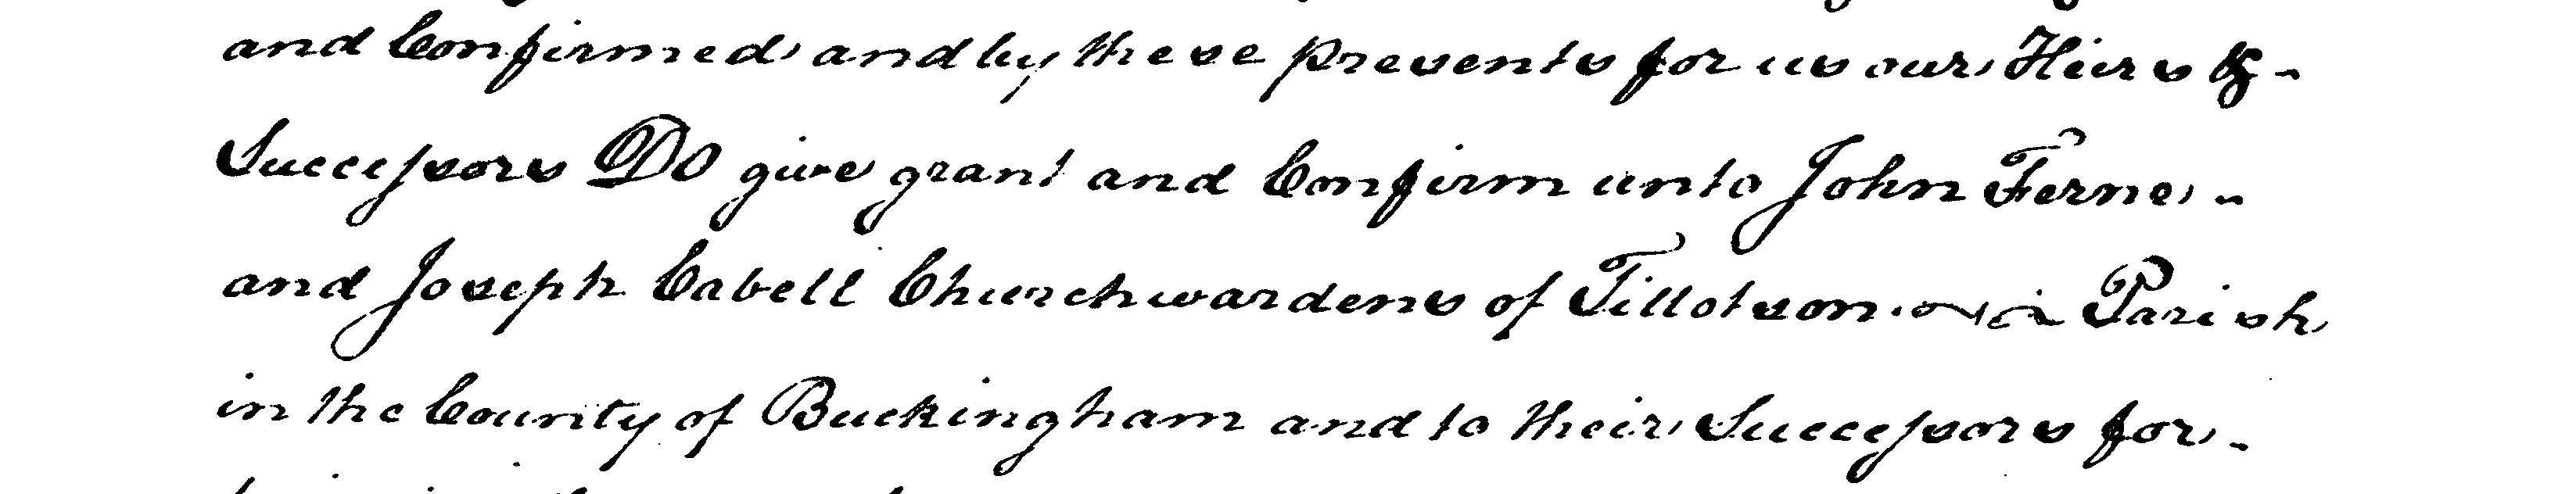 and Confirmed and by these presents for us our Heirs & -
Successors Do give grant and Confirm unto John Ferne -
and Joseph Cabell Churchwardens of Tillotson Parish
in the County of Buckingham and to their Successors for -